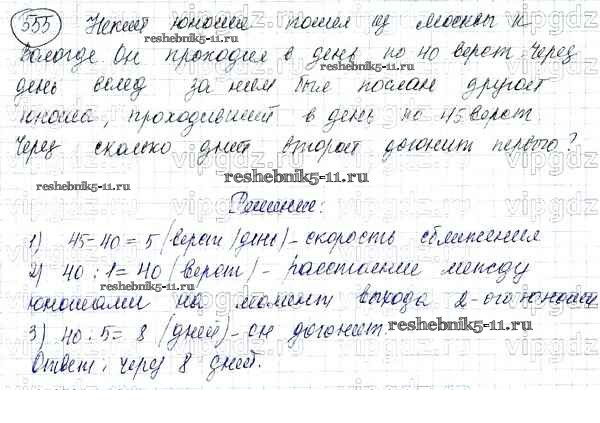 555 Некий юноша пошел из Москвы к
Вологде. Он проходил в день по 40 верст. Через
день вслед за ним был послан другой
юноша, проходивший в день по 45 верст.
Через сколько дней второй догонит первого?
Решение:
1) 45-40=5 (верст/день) - скорость сближения
2) 40:1=40 (верст) - расстояние между
юношами на момент выхода 2-ого юноши
3) 40:5=8 (дней) - он догонит.
Ответ: через 8 дней.
reshebnik5-11.ru
reshebnik5-11.ru
reshebnik5-11.ru
reshebnik5-11.ru
reshebnik5-11.ru
reshebnik5-11.ru
vipgdz.ru